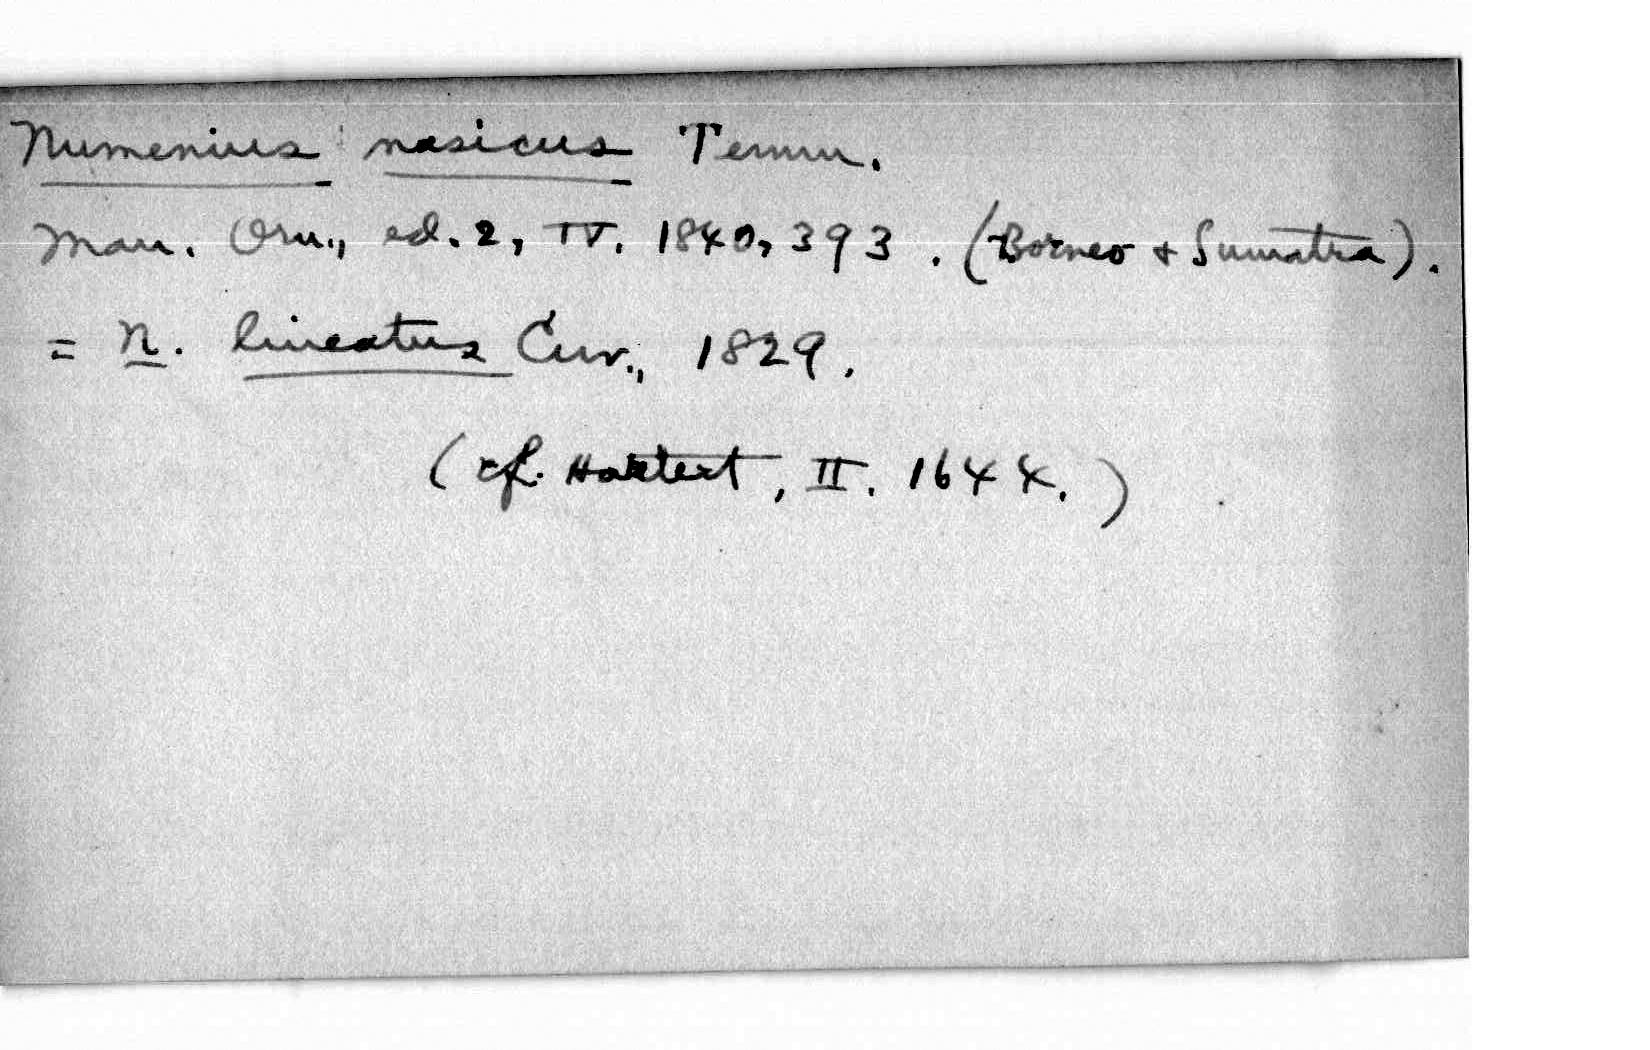 Numenius nasicus Temm.
Man. Orn., ed. 2, IV. 1840, 393. (Borneo & Sumatra).
= N. lineatus Cuv., 1829.
(cf. Hartert, II. 1644.)